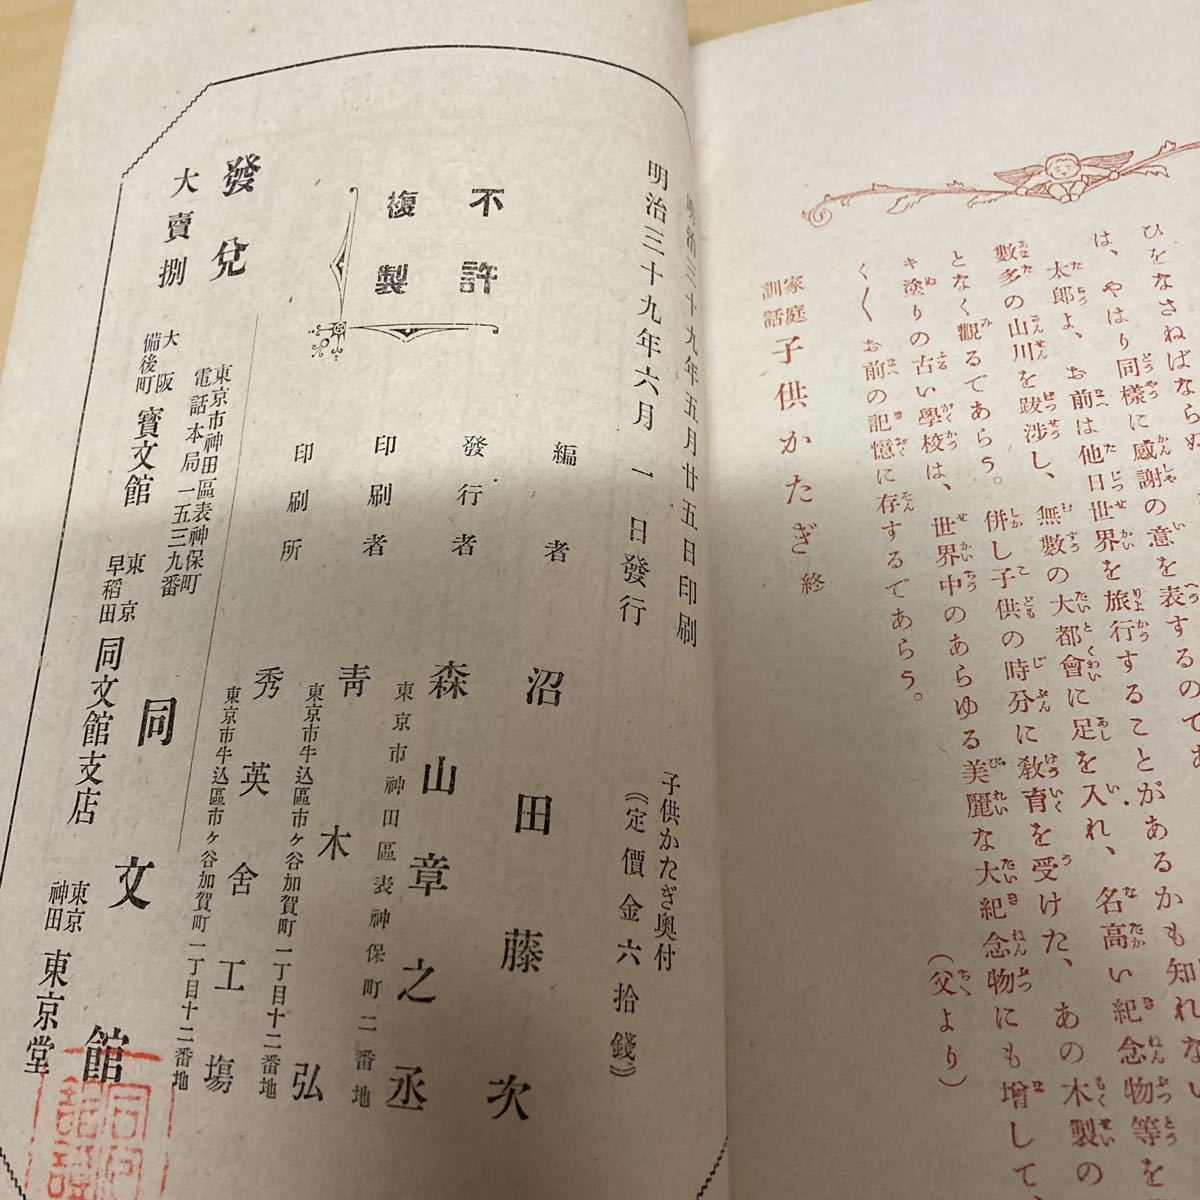 ひをなさねばならぬ
は、やはり同樣に感謝の意を表するのであ
太郎よ、お前は他日世界を旅行することがあるかも知れない
數多の山川を跋涉し、無數の大都會に足を入れ、名高い紀念物等を
となく觀るであらう。併し子供の時分に敎育を受けた、あの木製の
キ塗りの古い學校は、世界中のあらゆる美麗な大紀念物にも增して、
く〱お前の記憶に存するであらう。
(父より)
家庭訓話 子供かたぎ 終
明治三十九年五月廿五日印刷
明治三十九年六月一日發行
子供かたぎ奧付
《定價金六拾錢》
不許
複製
編者 沼田藤次
發行者 森山章之丞
東京市神田區表神保町二番地
印刷者 靑木弘
東京市牛込區市ヶ谷加賀町一丁目十二番地
印刷所 秀英舍工場
東京市牛込區市ヶ谷加賀町一丁目十二番地
發兌 同文館
東京市神田區表神保町
電話本局一五三九番
大賣捌
大阪備後町 寶文館
東京早稻田 同文館支店
東京神田 東京堂